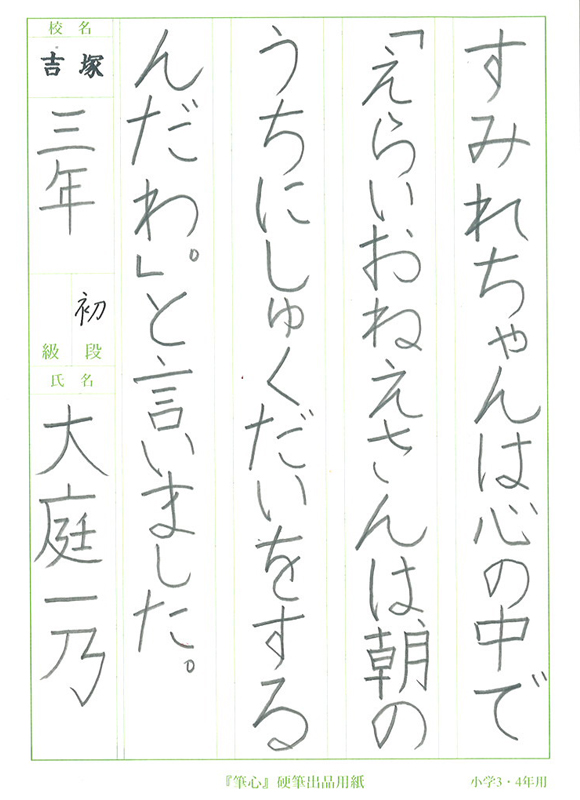 すみれちゃんは心の中で
「えらいおねえさんは、朝の
うちにしゅくだいをする
んだわ。」と言いました。
校名
吉塚
三年
初
級 段
氏名
大庭一乃
『筆心』硬筆出品用紙
小学3・4年用